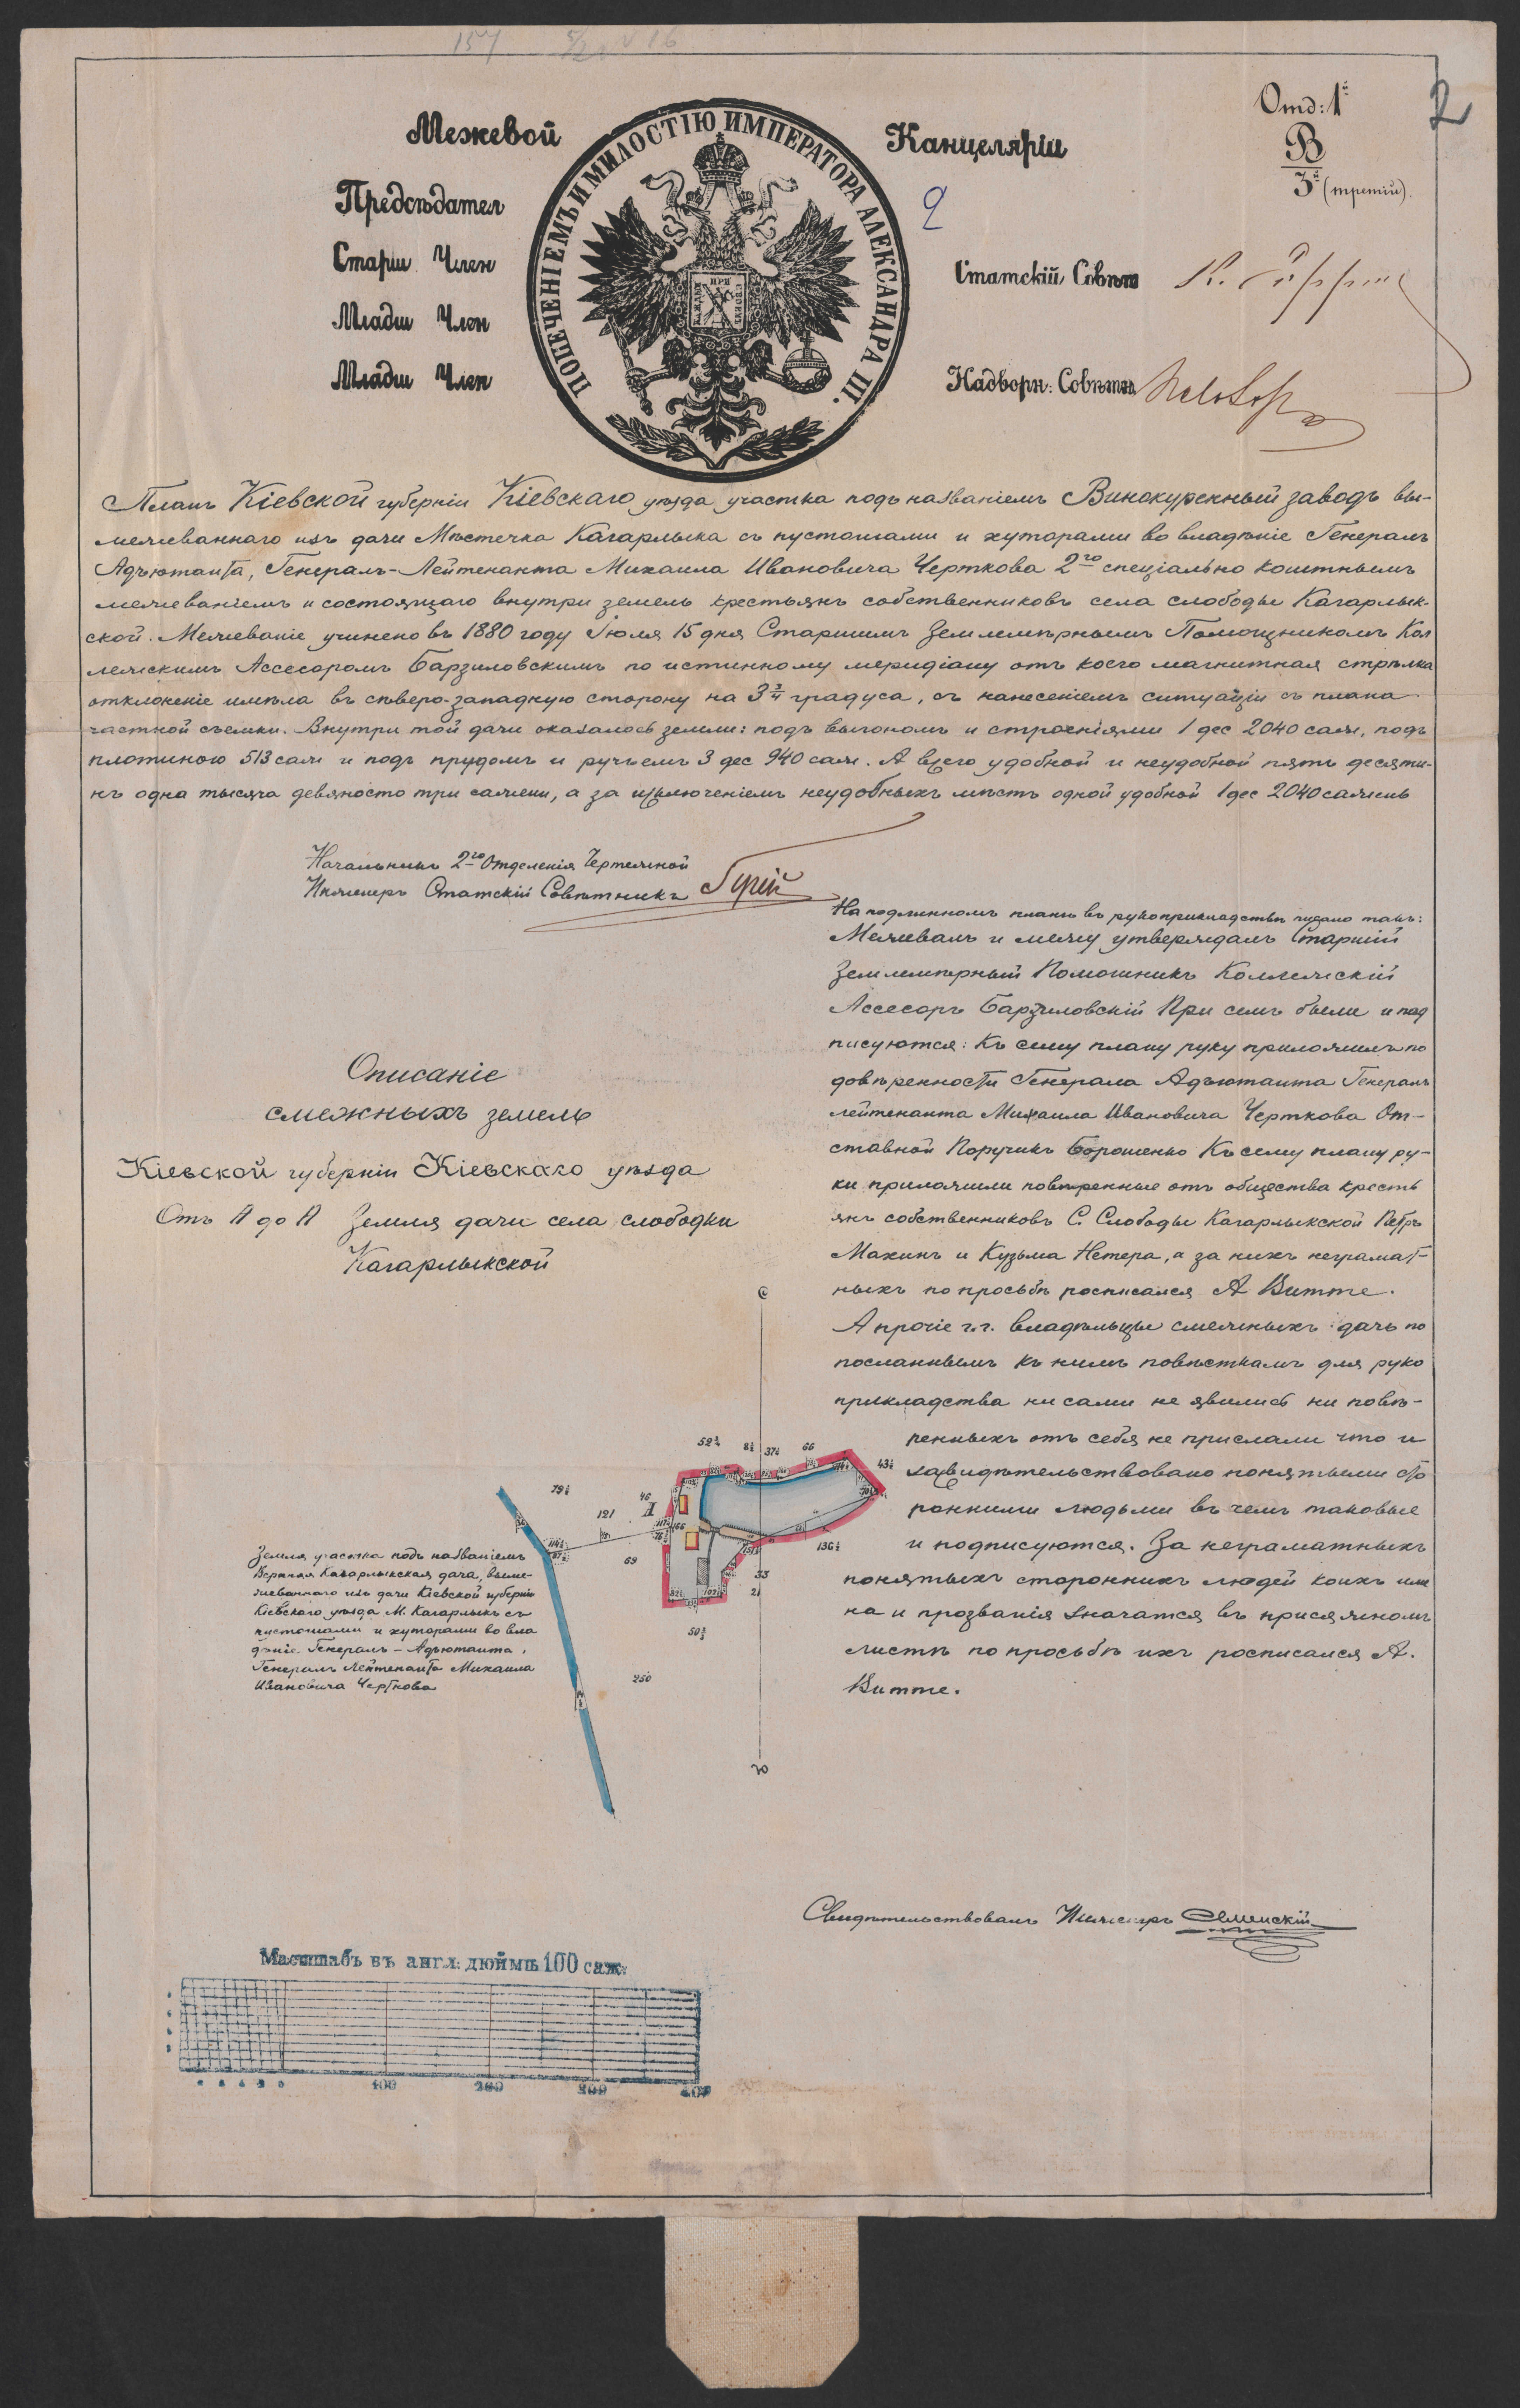 157
Отд: 1ѣ
2
В
3й (третій).
Межевой Канцеляріи
ПОПЕЧЕНІЕМЪ И МИЛОСТІЮ ИМПЕРАТОРА АЛЕКСАНДРА III.
Предсѣдател
2
Старш Член
Статскій Совѣт
Младш Член
Младш Член
Надворн: Совѣтн
Планъ Кіевской губерніи Кіевскаго уѣзда участка подъ названіемъ Винокуренный заводъ вы-
межеваннаго изъ дачи Мѣстечка Кагарлыка съ пустошами и хуторами во владѣніе Генералъ
Адъютанта, Генералъ-Лейтенанта Михаила Ивановича Черткова 2го спеціально коштнымъ
межеваніемъ и состоящаго внутри земель крестьянъ собственниковъ села слободы Кагарлык-
ской. Межеваніе учинено въ 1880 году Іюля 15 дня Старшимъ Землемѣрнымъ Помощникомъ Кол
лежскимъ Ассесоромъ Барзиловскимъ по истинному меридіану отъ коего магнитная стрѣлка
отклоненіе имѣла въ сѣверо-западную сторону на 3¾ градуса, съ нанесеніемъ ситуаціи съ плана
частной съемки. Внутри той дачи оказалось земли: подъ выгономъ и строеніями 1 дес 2040 саж, подъ
плотиною 513 саж и подъ прудомъ и ручьемъ 3 дес 940 саж. А всего удобной и неудобной пять десяти-
нъ одна тысяча девяносто три сажени, а за изключеніемъ неудобныхъ мѣстъ одной удобной 1 дес 2040 сажень
Начальникъ 2го Отделенія Чертежной
Инженеръ Статскій Совѣтникъ
На подлинномъ планѣ въ рукоприкладствѣ писано такъ:
Межевалъ и межу утверждалъ Старшій
Землемѣрный Помошникъ Коллежскій
Ассесоръ Барзиловскій При семъ были и под
писуются: Къ сему плану руку приложилъ по
довѣренности Генерала Адъютанта Генералъ
лейтенанта Михаила Ивановича Черткова От-
ставной Поручикъ Борошенко Къ сему плану ру-
ки приложили повѣренные отъ общества кресть
янъ собственниковъ С. Слободы Кагарлыкской Петръ
Махинъ и Кузьма Нетера, а за нихъ неграмат-
ныхъ по просьбѣ росписался А Витте.
А прочіе г.г. владѣльцы смежныхъ дачъ по
посланнымъ къ нимъ повѣсткамъ для руко
прикладства ни сами не явились ни повѣ-
ренныхъ отъ себя не прислали что и
засвидѣтельствовано понятыми сто
ронними людьми въ чемъ таковые
и подписуются. За неграматныхъ
понятыхъ стороннихъ людей коихъ име
на и прозванія значатся въ присяжномъ
листѣ по просьбѣ ихъ росписался А.
Витте.
Описаніе
смежныхъ земель
Кіевской губерніи Кіевскаго уѣзда
Отъ А до А Земля дачи села слободки
Кагарлыкской
С
52¾
37½
66
43½
79½
46
А
121
69
136½
33
21
50¾
250
Ю
Земля участка подъ названіемъ
Верхняя Кагарлыкская дача, выме-
жеваннаго изъ дачи Кіевской губерніи
Кіевскаго уѣзда М. Кагарлыкъ съ
пустошами и хуторами во вла
дѣніе Генералъ-Адъютанта,
Генералъ Лейтенанта Михаила
Ивановича Черткова
Свидѣтельствовалъ Инженеръ
Масштабъ въ англ: дюймѣ 100 саж:
100 200 300 400